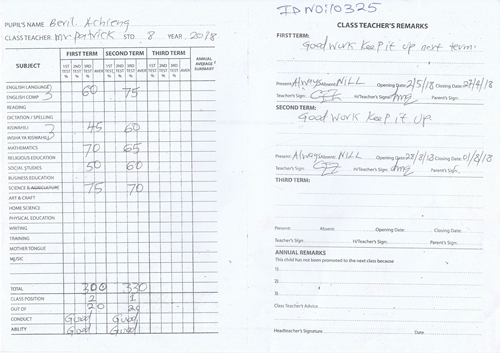 PUPIL'S NAME Beril Achieng
CLASS TEACHER Mr. patrick STD 8 YEAR 2018
FIRST TERM SECOND TERM THIRD TERM
ANNUAL AVERAGE SUMMARY
SUBJECT 1ST TEST % 2ND TEST % 3RD TEST % AVER 1ST TEST % 2ND TEST % 3RD TEST % AVER 1ST TEST % 2ND TEST % 3RD TEST % AVER
ENGLISH LANGUAGE
ENGLISH COMP 60 75
READING
DICTATION / SPELLING
KISWAHILI 45 60
INSHA YA KISWAHILI
MATHEMATICS 70 65
RELIGIOUS EDUCATION
SOCIAL STUDIES 50 60
BUSINESS EDUCATION
SCIENCE & AGRICULTURE 75 70
ART & CRAFT
HOME SCIENCE
PHYSICAL EDUCATION
WRITING
TRAINING
MOTHER TONGUE
MUSIC
TOTAL 300 330
CLASS POSITION 2 1
OUT OF 20 20
CONDUCT Good Good
ABILITY Good Good
ID NO:10325
CLASS TEACHER'S REMARKS
FIRST TERM:
Good work keep it up next term.
Present: Always Absent: NILL Opening Date: 2/5/18 Closing Date: 27/4/18
Teacher's Sign: H/Teacher's Signature Parent's Sign:
SECOND TERM:
Good work keep it up.
Present: Always Absent: NILL Opening Date: 28/8/18 Closing Date: 01/8/18
Teacher's Sign: H/Teacher's Sign: Parent's Sign:
THIRD TERM:
Present: Absent: Opening Date: Closing Date:
Teacher's Sign: H/Teacher's Sign: Parent's Sign:
ANNUAL REMARKS
This child has not been promoted to the next class because
Class Teacher's Advice
Headteacher's Signature Date